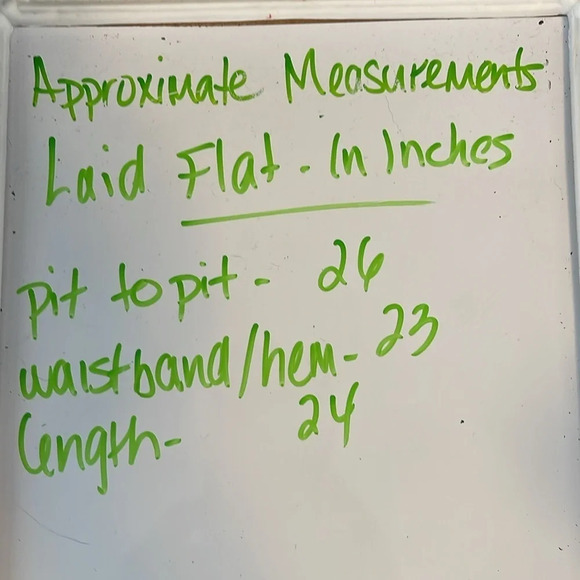 Approximate Measurements
Laid Flat - In Inches
pit to pit - 26
waistband/hem - 23
length - 24